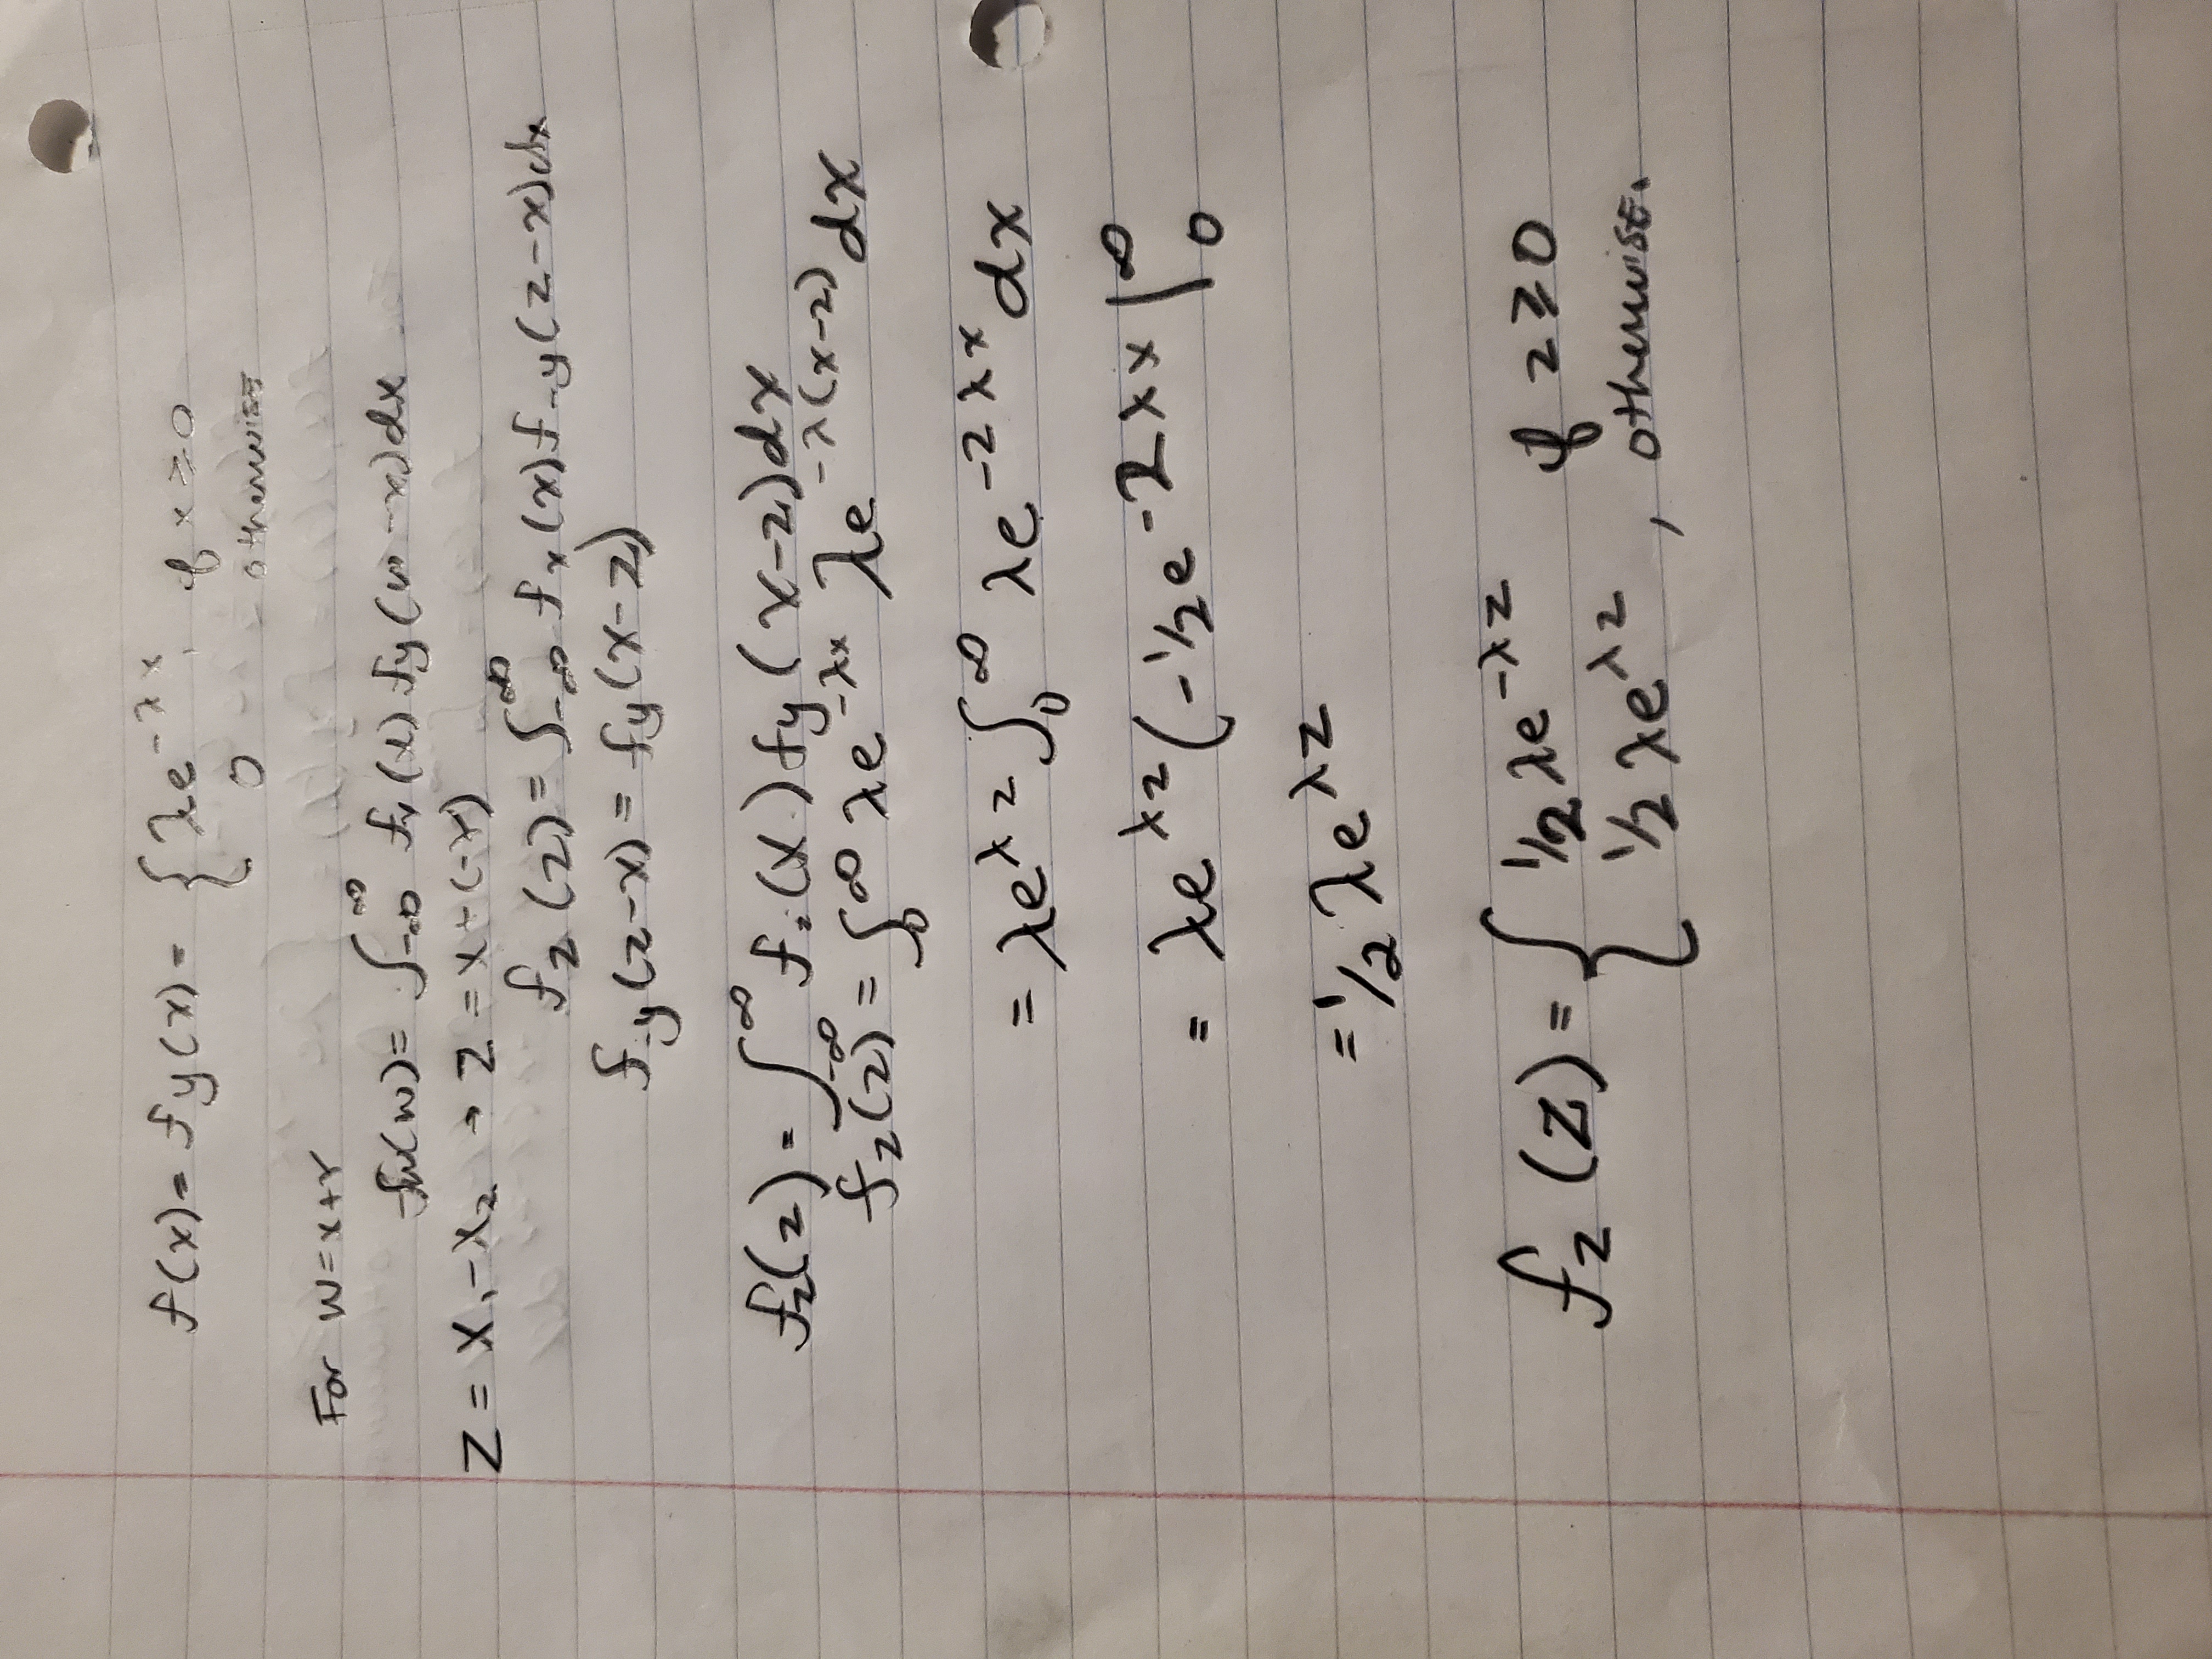 f(x) = fy(x) = { λe^-λx, if x ≥ 0
0 otherwise
For W = x+Y
fw(w) = ∫-∞^∞ fx(x) fy(w-x)dx
Z = X₁-X₂ → Z = X+(-Y)
fz(z) = ∫-∞^∞ fx(x) f-y(z-x)dx
f-y(z-x) = fy(x-z)
fz(z) = ∫-∞^∞ f(x) fy(x-z)dx
fz(z) = ∫0^∞ λe^-λx λe^-λ(x-z) dx
= λe^λz ∫0^∞ λe^-2λx dx
= λe^λz (-1/2e^-2λx |0^∞
= 1/2 λe^λz
fz(z) = { 1/2 λe^-λz if z ≥ 0
1/2 λe^λz, otherwise.